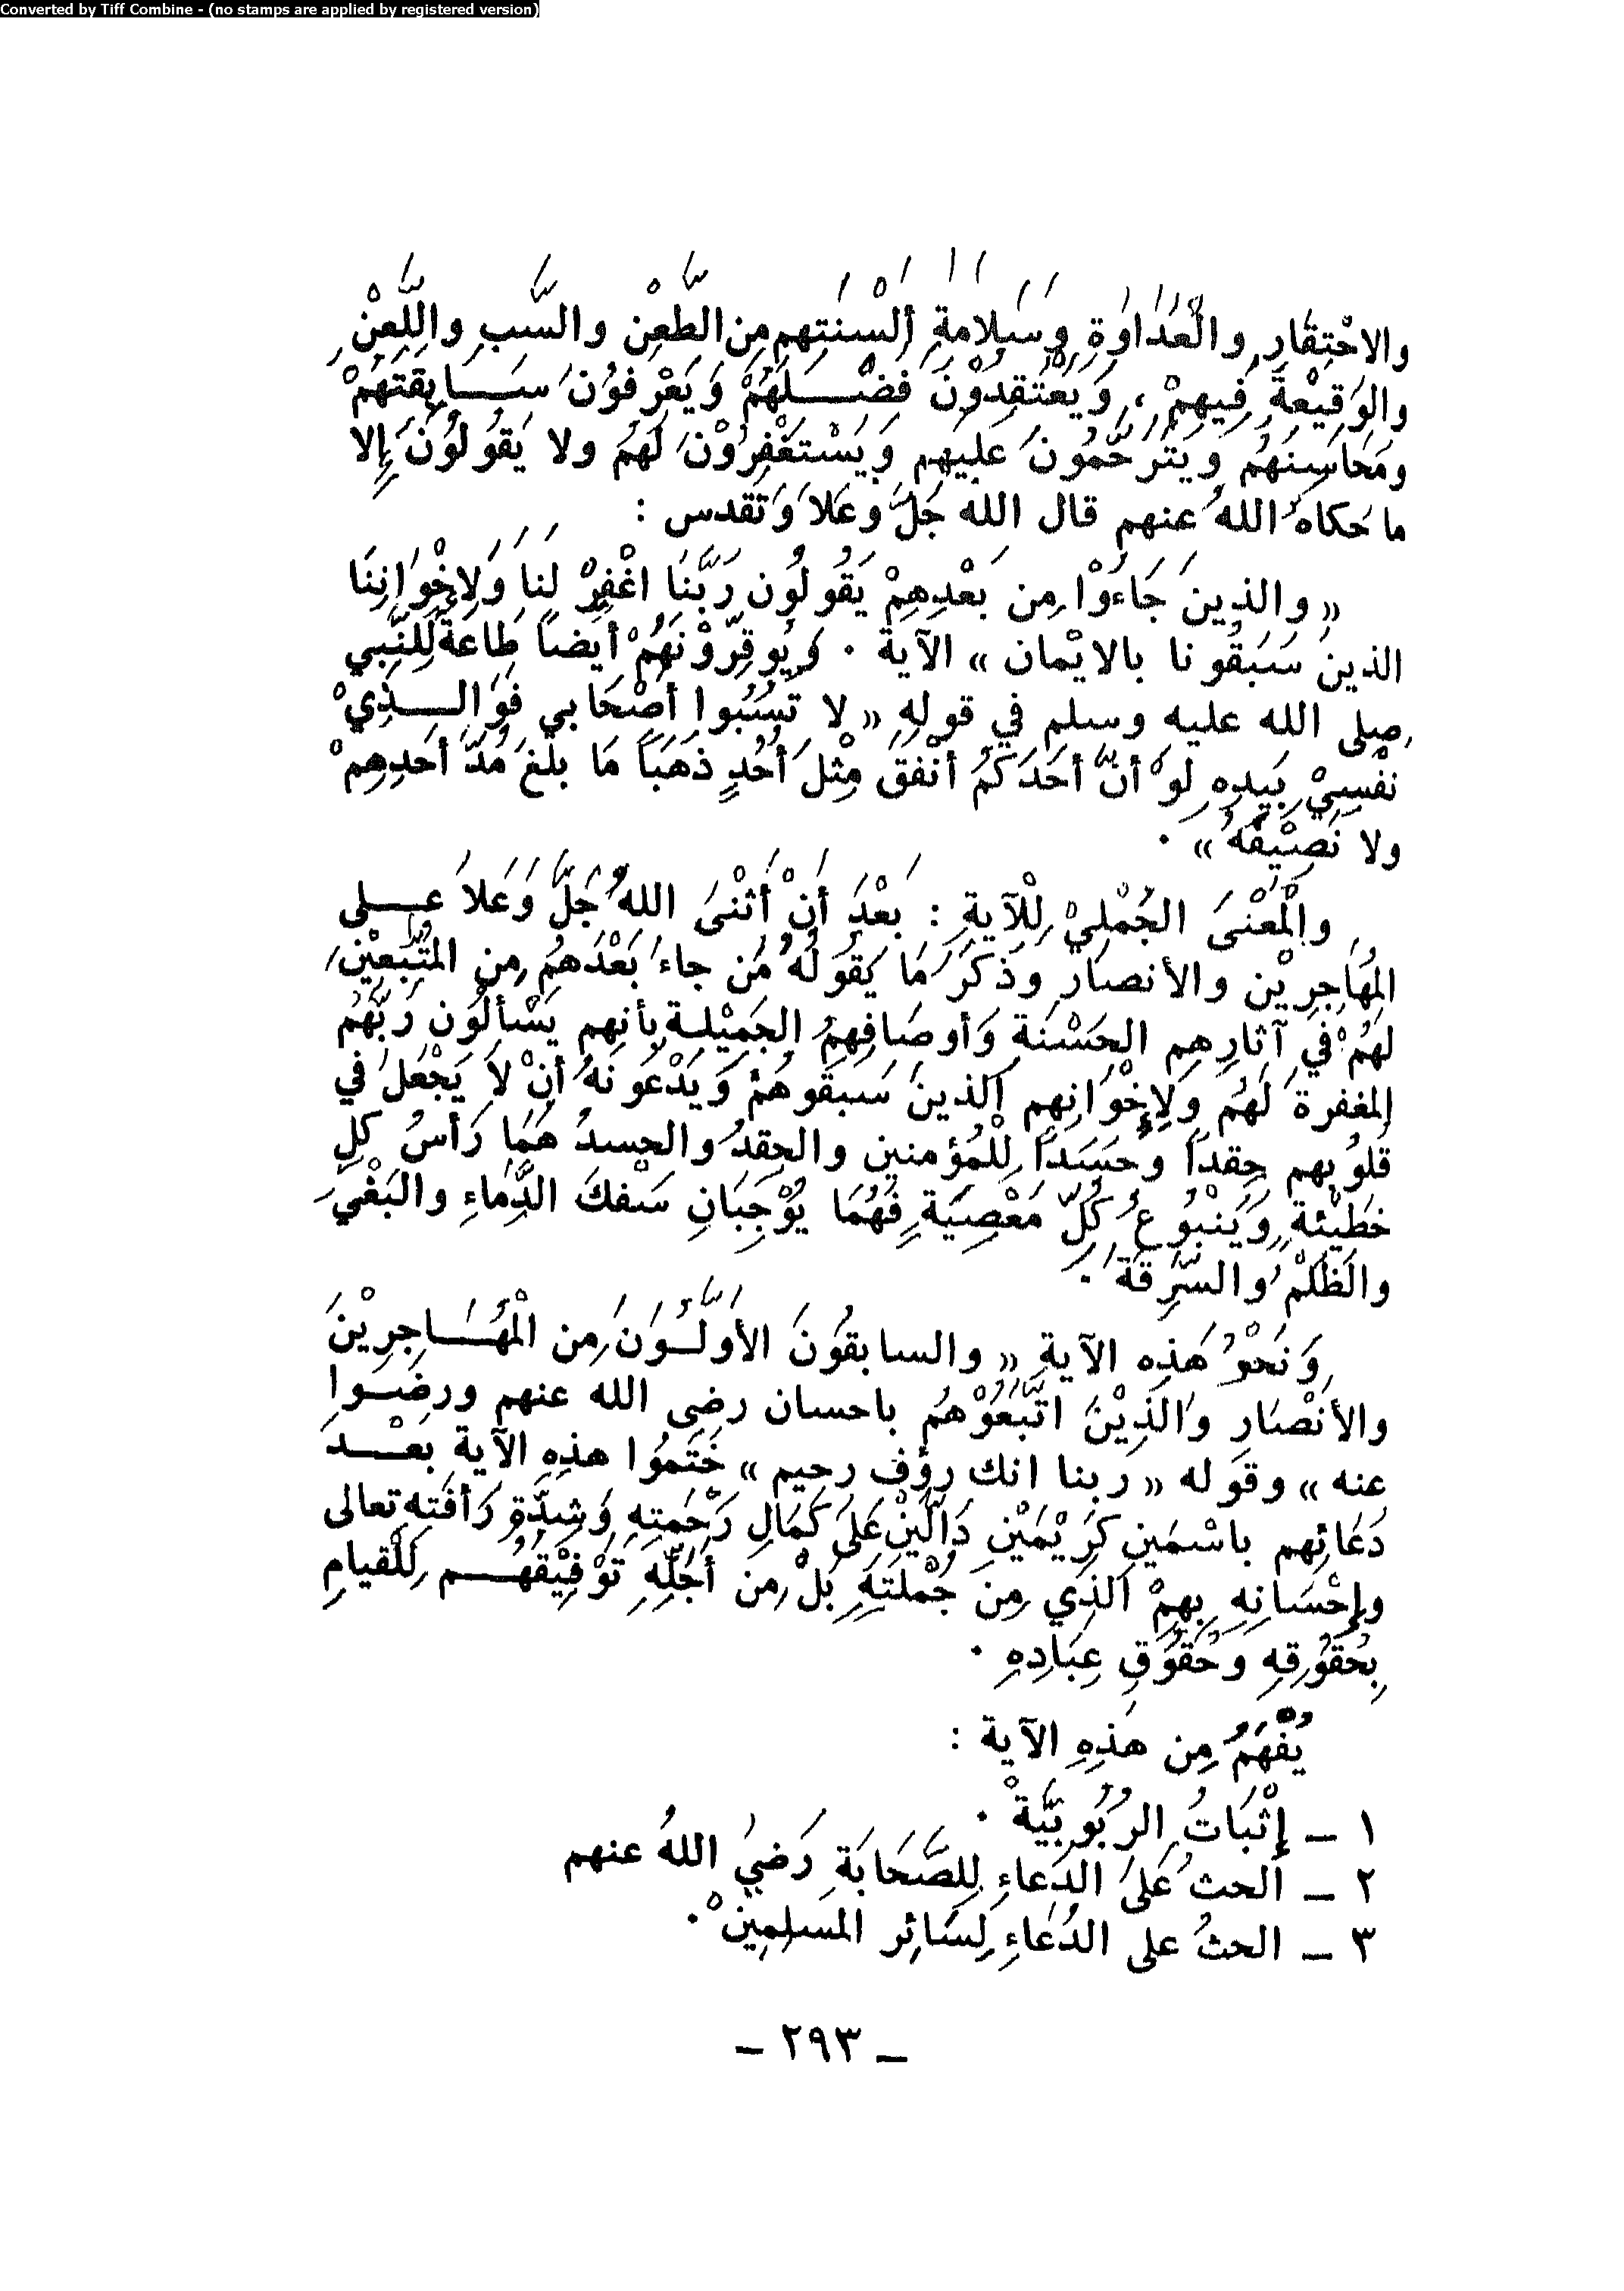 Converted by Tiff Combine - (no stamps are applied by registered version)
والاحْتِقَارِ والْعَدَاوَةِ وَسَلامَةِ أَلْسِنَتِهِم مِن الطَّعْنِ والسَّبِ واللَّعْنِ
والوَقِيْعَةَ فِيهِمْ ، وَيَعْتَقِدُوْنَ فَضْلَهُمْ وَيَعْرِفُوْنَ سَابِقَتَهُمْ
ومَحَاسِنَهُم وَيَتَرَحَّمُونَ عليهم وَيَسْتَغْفِرُوْنَ لَهُمَ ولا يَقُولُوْنَ إِلا
ما حَكاهُ اللهُ عنهم قال الله جَلَّ وعَلاَ وَتَقَدس :
« والذِينَ جَاءُوْا مِن بَعْدِهِمْ يَقُولُون رَبَّنَا اغْفِرْ لِنا وَلِإِخْوَانِنَا
الذينَ سَبَقُونا بالايْمان » الآية . وَيُوَقِّرُوْنَهُمْ أيضاً طَاعَةً لِلنَّبي
صلى الله عليه وسلم في قولِهِ « لا تَسُبُّوا أصْحَابي فَوَالذِيْ
نَفْسِيْ بِيَدِهِ لَوْ أَنَّ أَحَدَكُم أَنْفَقَ مِثْلَ أُحُدٍ ذَهَبَاً مَا بلَغَ مُدَّ أحَدِهِمْ
ولا نَصِيْفَهُ » .
والْمَعْنَى الجُمْلِيْ لِلآيَةِ : بَعْدَ أَنْ أَثْنَى اللهُ جَلَّ وَعَلاَ على
المُهَاجِرِيْن والأنصارِ وذَكَرَ مَا يَقُولُهُ مَن جاءَ بَعْدَهِمُ مِن المتَّبِعِيْنَ
لَهُمْ في آثارِهِم الحَسْنَةِ وَأوصَافِهِمُ الجَمِيْلةِ بِأنهم يَسْألُون رَبَّهُم
المغفرةَ لَهُم وَلِإِخْوَانِهِم الذينَ سَبقُوهُمْ وَيَدْعُونَهُ أَنْ لاَ يَجْعَلَ في
قُلُوبِهم حِقداً وحَسَداً لِلْمُؤمنين والحِقدُ والحسدُ هُمَا رَأسُ كلِ
خَطِيْئَةٍ وَيَنْبُوعُ كُلِّ مَعْصِيَةٍ فَهُمَا يُوْجِبَانِ سَفْكَ الدِّمَاءِ والبَغْيَ
والظُلْمَ والسَّرِقَةَ .
وَنَحْوُ هَذِهِ الآيةِ « والسابقُونَ الأوَّلُونَ مِن الْمُهَاجِرِيْنَ
والأنْصَارِ وَالَّذِيْنَ اتَّبَعُوْهُم باحسان رضي الله عنهم ورضوا
عنه » وقوله « ربنا انك رؤف رحيم » خَتَمُوا هذِهِ الآيةَ بعْدَ
دُعَائِهم باسْمَينِ كَرِيْمَيْنِ دَالَّيْنِ عَلَى كَمَالِ رَحْمَتِهِ وَشِدَّةِ رَأفَتِهِ تعالى
وإِحْسَانِهِ بِهِمْ الَّذِي مِن جُمْلَتِهِ بَلْ مِن أَجَلِّهِ تَوْفِيْقَهُم لِلْقيامِ
بِحُقُوْقِهِ وحُقُوْقِ عِبَادِهِ .
يُفْهَمُ مِن هَذِهِ الآية :
١ ــ إِثْبَاتُ الرُبُوبيَّةْ .
٢ ــ الحث عَلى الدُعاءِ لِلصَّحَابَةِ رَضيَ اللهُ عنهم
٣ ــ الحثُ على الدُعَاءِ لِسَائِر المسلِمِيْنْ .
ــ ٢٩٣ ــ